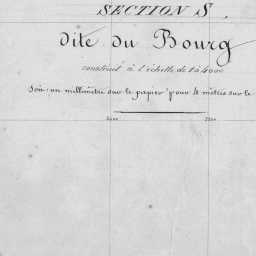 SECTION S.
dite du Bourg
construit à l'échelle de 1 à 4000
Soit un millimètre sur le papier pour 4 mètres sur le